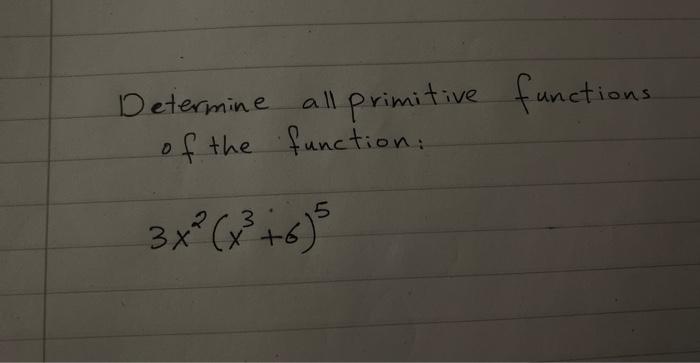 Determine all primitive functions
of the function:
3x²(x³+6)⁵